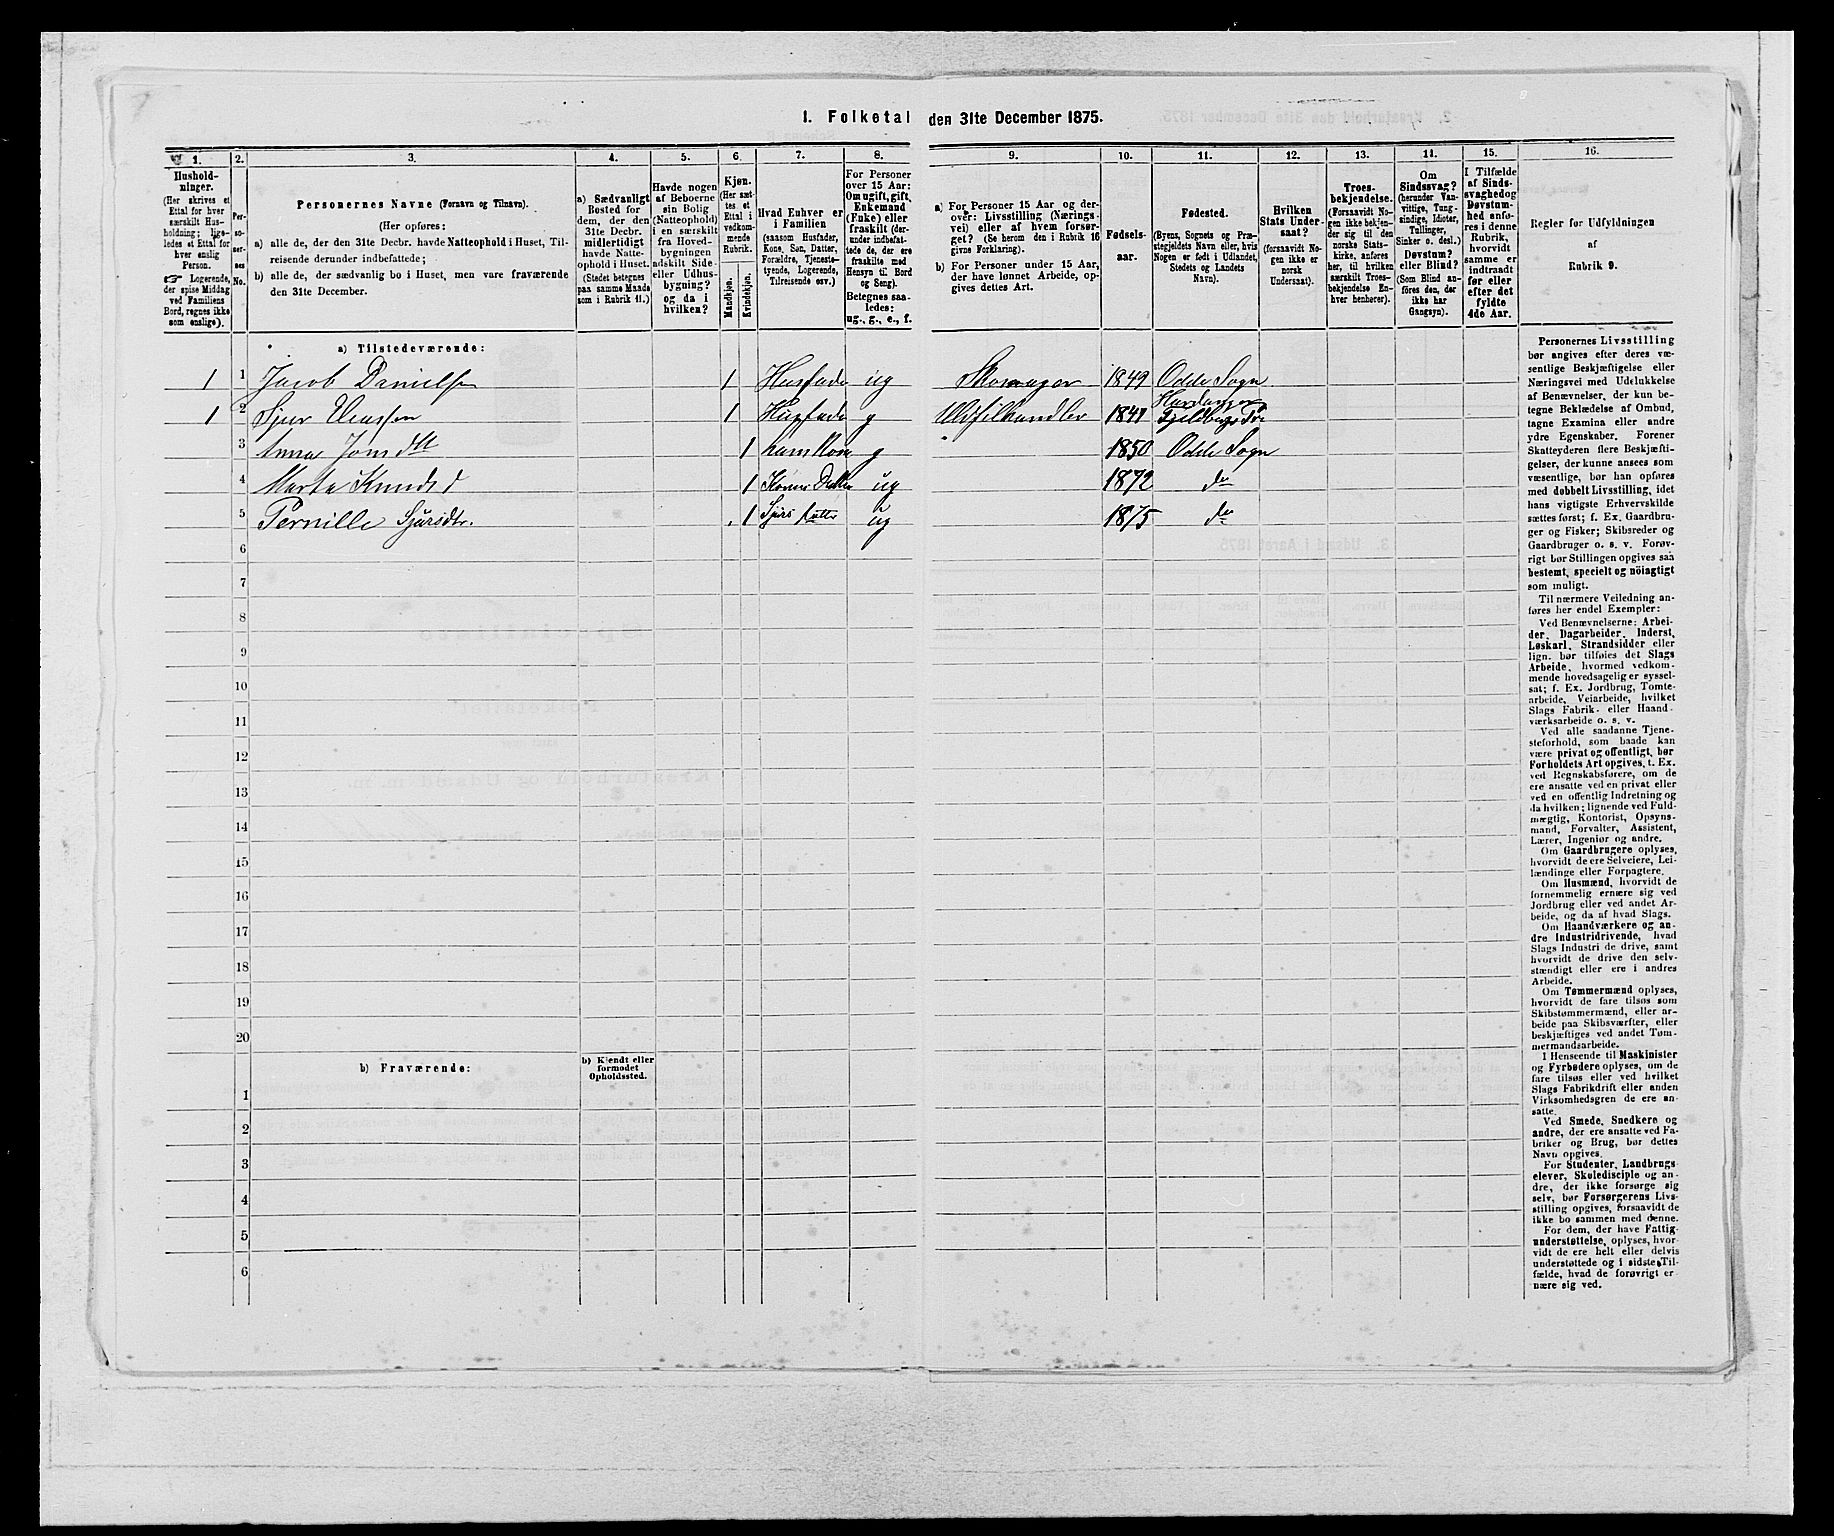 1. Folketal den 31te December 1875.
1. 2. 3. 4. 5. 6. 7. 8. 9. 10. 11. 12. 13. 14. 15. 16.
Hushold-
ninger.
(Her skrives et
Ettal for hver
særskilt Hus-
holdning; lige-
ledes et Ettal for
hver enslig
Person.
☞ Logerende,
der spise Middag
ved Familiens
Bord, regnes ikke
som enslige).
Per-
so-
ner-
nes
No.
Personernes Navne (Fornavn og Tilnavn).
(Her opføres:
a) alle de, der den 31te Decbr. havde Natteophold i Huset, Til-
reisende derunder indbefattede;
b) alle de, der sædvanlig bo i Huset, men vare fraværende
den 31te December.
a) Sædvanligt
Bosted for
dem, der den
31te Decbr.
midlertidigt
havde Natte-
ophold i Huset.
(Stedet betegnes
paa samme Maade
som i Rubrik 11.)
Havde nogen
af Beboerne
sin Bolig
(Natteophold)
i en særskilt
fra Hoved-
bygningen
adskilt Side-
eller Udhus-
bygning?
og da i
hvilken?
Kjøn.
(Her sæt-
tes et
Ettal i
vedkom-
mende
Rubrik.
Mandkjøn.
Kvindekjøn.
Hvad Enhver er
i Familien
(saasom Husfader,
Kone, Søn, Datter,
Forældre, Tjeneste-
tyende, Logerende,
Tilreisende osv.)
For Personer
over 15 Aar:
Om ugift, gift,
Enkemand
(Enke) eller
fraskilt (der-
under indbefat-
tede de, der ere
fraskilte med
Hensyn til Bord
og Seng).
Betegnes saa-
ledes:
ug., g., e., f.
a) For Personer 15 Aar og der-
over: Livsstilling (Nærings-
vei) eller af hvem forsør-
get? (Se herom den i Rubrik 16
givne Forklaring).
b) For Personer under 15 Aar,
der have lønnet Arbeide, op-
gives dettes Art.
Fødsels-
aar.
Fødested.
(Byens, Sognets og Præ-
stegjeldets Navn eller, hvis
Nogen er født i Udlandet,
Stedets og Landets
Navn).
Hvilken
Stats Under-
saat?
(forsaavidt No-
gen ikke er
norsk
Undersaat).
Troes-
bekjendelse.
(Forsaavidt No-
gen ikke bekjen-
der sig til den
norske Stats-
kirke, anføres
her, til hvilken
særskilt Troes-
bekjendelse En-
hver henhører).
Om
Sindssvag?
(herunder Van-
vittige, Tung-
sindige, Idioter,
Tullinger,
Sinker o. desl.)
Døvstum?
eller Blind?
(Som Blind an-
føres den, der
ikke har
Gangsyn).
I Tilfælde
af Sinds-
svaghed og
Døvstum-
hed anfø-
res i denne
Rubrik,
hvorvidt
samme er
indtraadt
før eller
efter det
fyldte
4de Aar.
Regler før Udfyldningen
af
Rubrik 9.
a) Tilstedeværende:
1 1 Jacob Danielsen 1 Husfade ug Skomager 1849 Odde Sogn
Hardanger
1 2 Sjur 1 Husfade g 1841 Fjeldbergs Pr
3 Anna Jonsdtt 1 hans Kone g " 1850 Odde Sogn
4 Marta Knudsd 1 Kones Datter ug 1872 do
5 Pernille Sjursdtr. 1 Sjurs Datter ug 1875 do
6
7
8
9
10
11
12
13
14
15
16
17
18
19
20
b) Fraværende:
b) Kjendt eller
formodet
Opholdssted.
1
2
3
4
5
6
Personernes Livsstilling
bør angives efter deres væ-
sentlige Beskjæftigelse eller
Næringsvei med Udelukkelse
af Benævnelser, der kun be-
tegne Beklædelse af Ombud,
tagne Examina eller andre
ydre Egenskaber. Forener
Skatteyderen flere Beskjæfti-
gelser, der kunne ansees som
væsentlige, bør han opføres
med dobbelt Livsstilling, idet
hans vigtigste Erhvervskilde
sættes først; f. Ex. Gaardbru-
ger og Fisker; Skibsreder og
Gaardbruger o. s. v. Forøv-
rigt bør Stillingen opgives saa
bestemt, specielt og nöiagtigt
som muligt.
Til nærmere Veiledning an-
føres her endel Exempler:
Ved Benævnelserne: Arbei-
der, Dagarbeider, Inderst,
Løskarl, Strandsidder eller
lign. bør tilføies det Slags
Arbeide, hvormed vedkom-
mende hovedsagelig er syssel-
sat; f. Ex. Jordbrug, Tomte-
arbeide, Veiarbeide, hvilket
Slags Fabrik- eller Haand-
værksarbeide o. s. v.
Ved alle saadanne Tjene-
steforhold, som baade kan
være privat og offentligt, bør
Forholdets Art opgives, t. Ex.
ved Regnskabsførere, om de
ere ansatte ved en privat eller
ved en offentlig Indretning og
da hvilken; lignende ved Fuld-
mægtig, Kontorist, Opsyns-
mand, Forvalter, Assistent,
Lærer, Ingeniør og andre.
Om Gaardbrugere oplyses,
hvorvidt de ere Selveiere, Lei-
lændinge eller Forpagtere.
Om Husmænd, hvorvidt de
fornemmelig ernære sig ved
Jordbrug eller ved andet Ar-
beide, og da af hvad Slags.
Om Haandværkere og an-
dre Industridrivende, hvad
Slags Industri de drive, samt
hvorvidt de drive den selv-
stændigt eller ere i andres
Arbeide.
Om Tømmermænd oplyses,
hvorvidt de fare tilsøs som
Skibstømmermænd, eller ar-
beide paa Skibsværfter, eller
beskjæftiges ved andet Tøm-
mermandsarbeide.
I Henseende til Maskinister
og Fyrbødere oplyses, om de
fare tilsøs eller ved hvilket
Slags Fabrikdrift eller anden
Virksomhedsgren de ere an-
satte.
Ved Smede, Snedkere og
andre, der ere ansatte ved Fa-
briker og Brug, bør dettes
Navn opgives.
For Studenter, Landbrugs-
elever, Skoledisciple og an-
dre, der ikke forsørge sig
selv, bør Forsørgerens Livs-
stilling opgives, forsaavidt de
ikke bo sammen med denne.
For dem, der have Fattig-
understøttelse, oplyses, hvor-
vidt de ere helt eller delvis
understøttede og i sidste Til-
fælde, hvad de forøvrigt er-
nære sig ved.